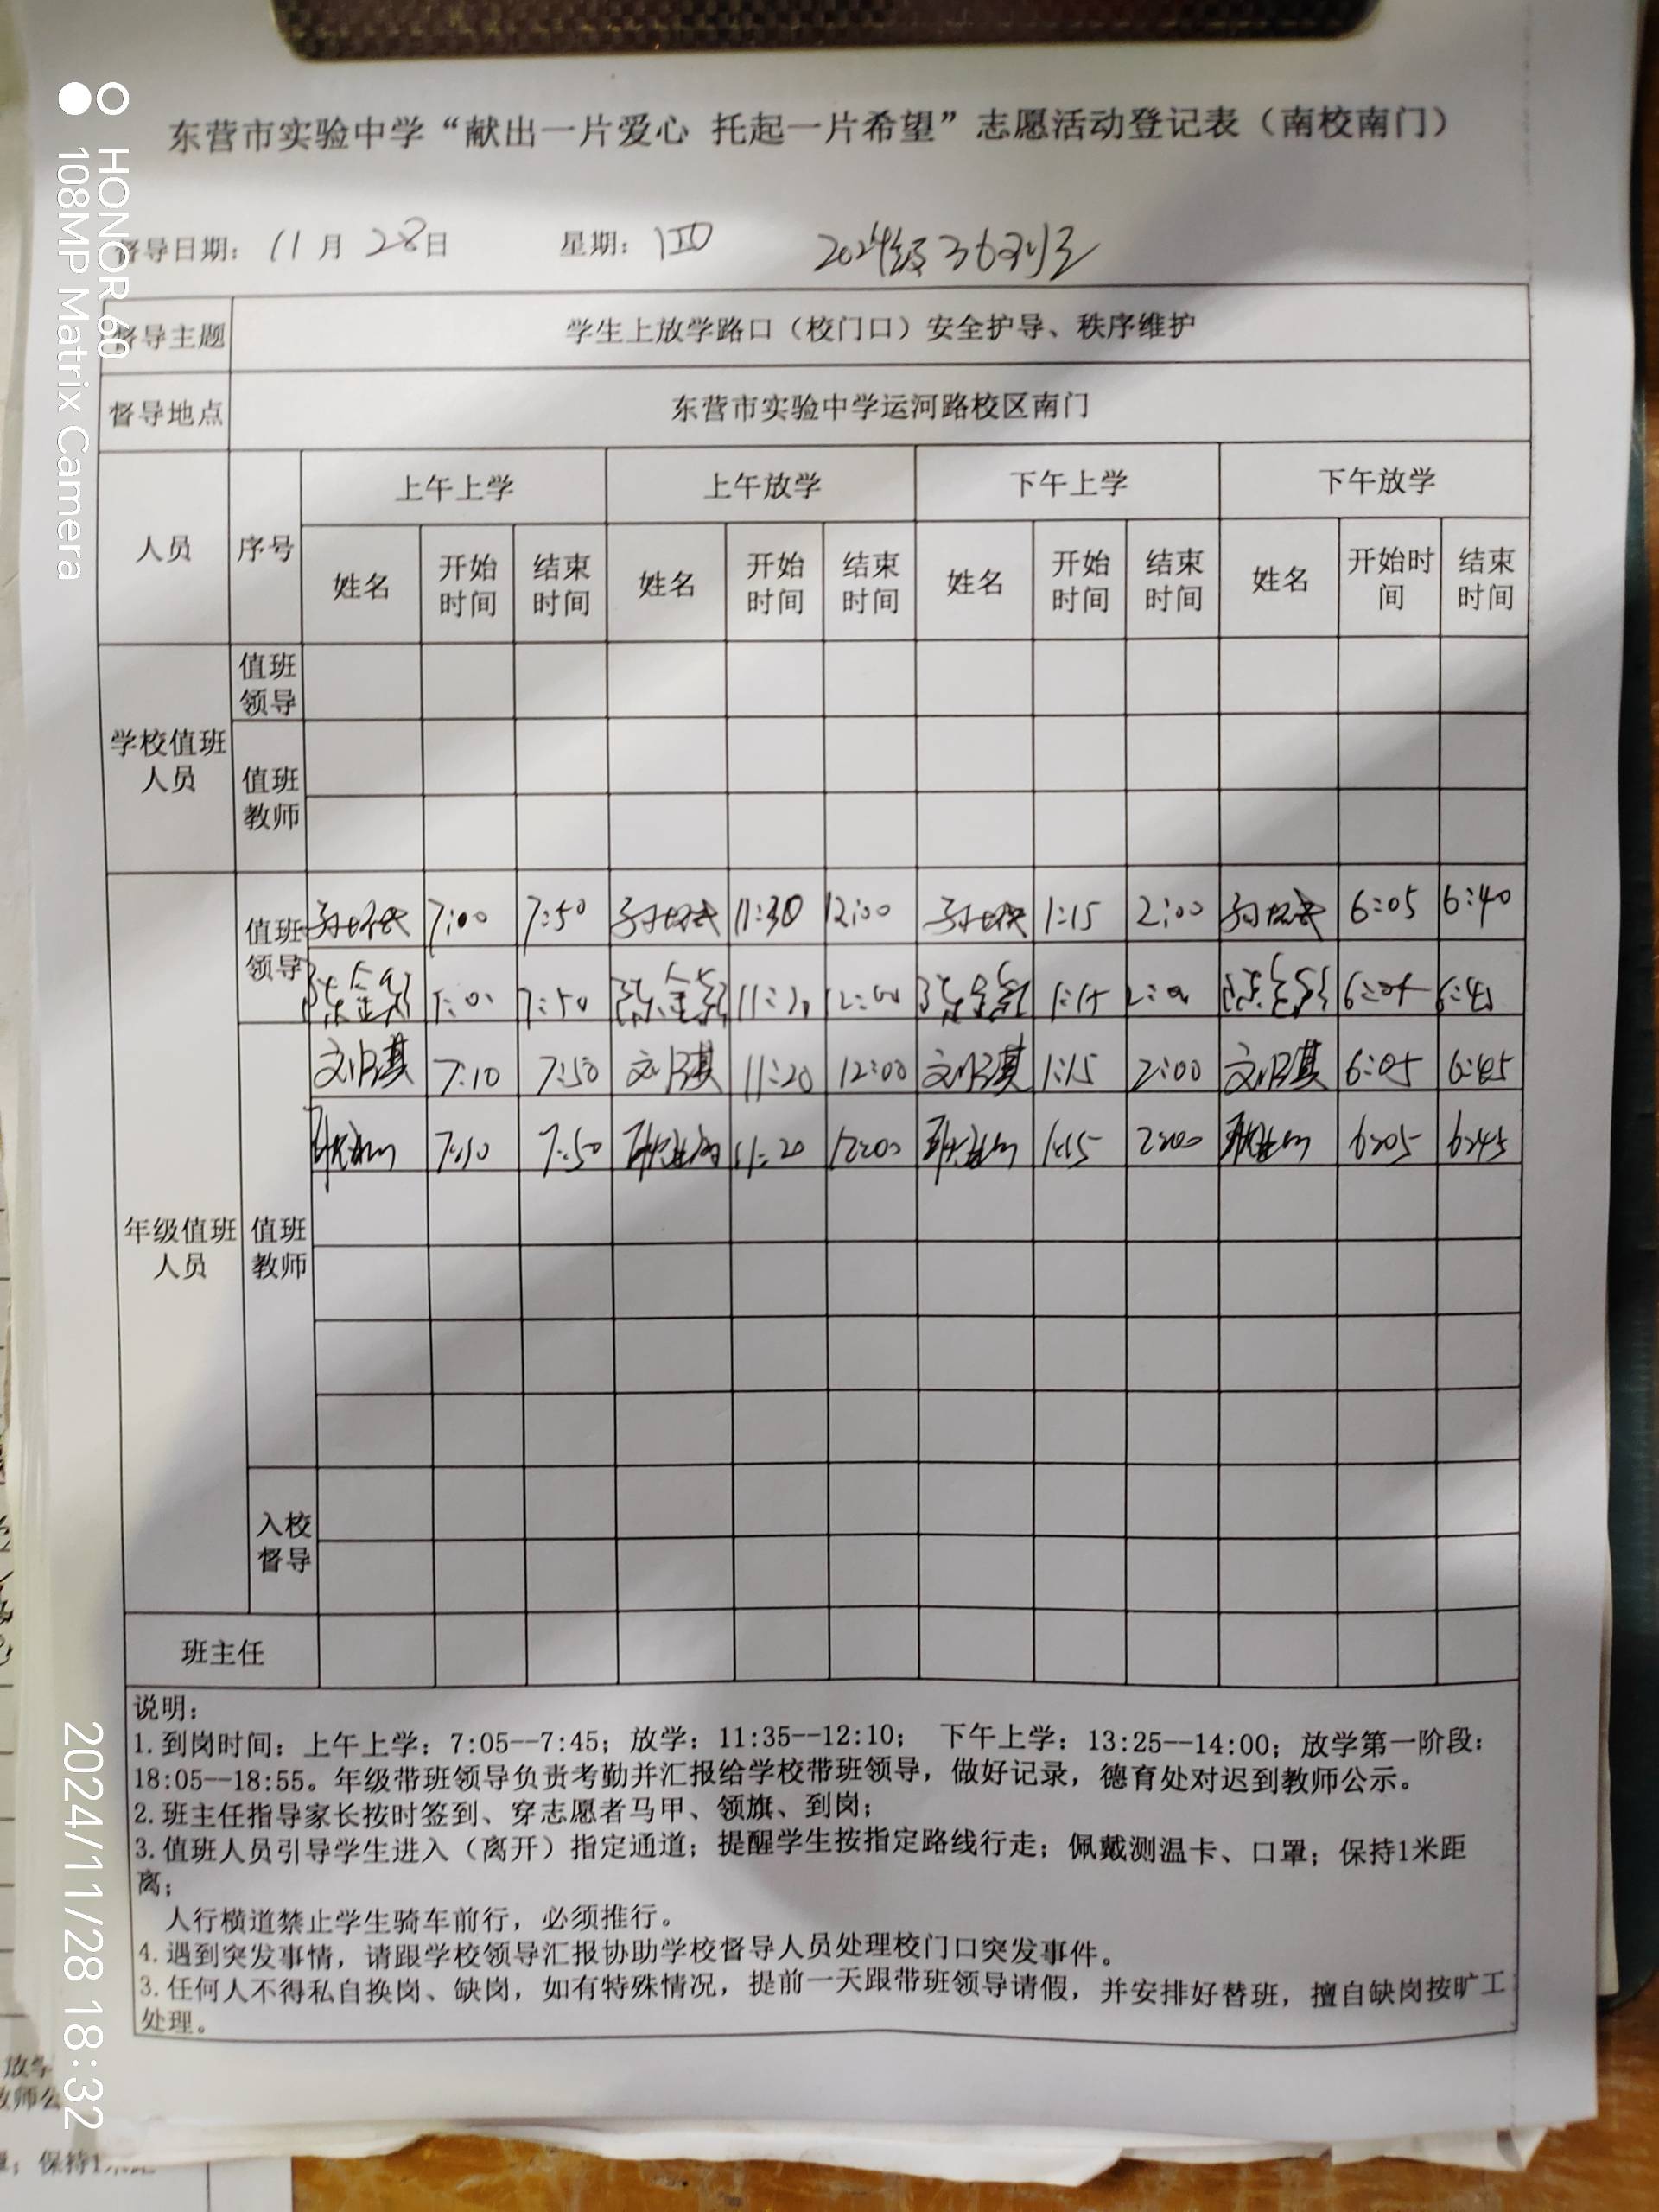 东营市实验中学“献出一片爱心 托起一片希望”志愿活动登记表（南校南门）
督导日期：11月28日 星期：四 2024级3627
督导主题 学生上放学路口（校门口）安全护导、秩序维护
督导地点 东营市实验中学运河路校区南门
人员 序号 上午上学 上午放学 下午上学 下午放学
姓名 开始时间 结束时间 姓名 开始时间 结束时间 姓名 开始时间 结束时间 姓名 开始时间 结束时间
学校值班人员 值班领导
值班教师
年级值班人员 值班领导 7:00 7:50 11:30 12:00 1:15 2:00 6:05 6:40
7:50
值班教师 7:10 7:50 11:20 12:00 1:15 2:00 6:05 6:45
7:10 7:50 11:20 12:00 1:15 2:00 6:05 6:45
入校督导
班主任
说明：
1.到岗时间：上午上学：7:05--7:45；放学：11:35--12:10； 下午上学：13:25--14:00；放学第一阶段：
18:05--18:55。年级带班领导负责考勤并汇报给学校带班领导，做好记录，德育处对迟到教师公示。
2.班主任指导家长按时签到、穿志愿者马甲、领旗、到岗；
3.值班人员引导学生进入（离开）指定通道；提醒学生按指定路线行走；佩戴测温卡、口罩；保持1米距
离；
人行横道禁止学生骑车前行，必须推行。
4.遇到突发事情，请跟学校领导汇报协助学校督导人员处理校门口突发事件。
3.任何人不得私自换岗、缺岗，如有特殊情况，提前一天跟带班领导请假，并安排好替班，擅自缺岗按旷工
处理。
HONOR 60
108MP Matrix Camera
2024/11/28 18:32